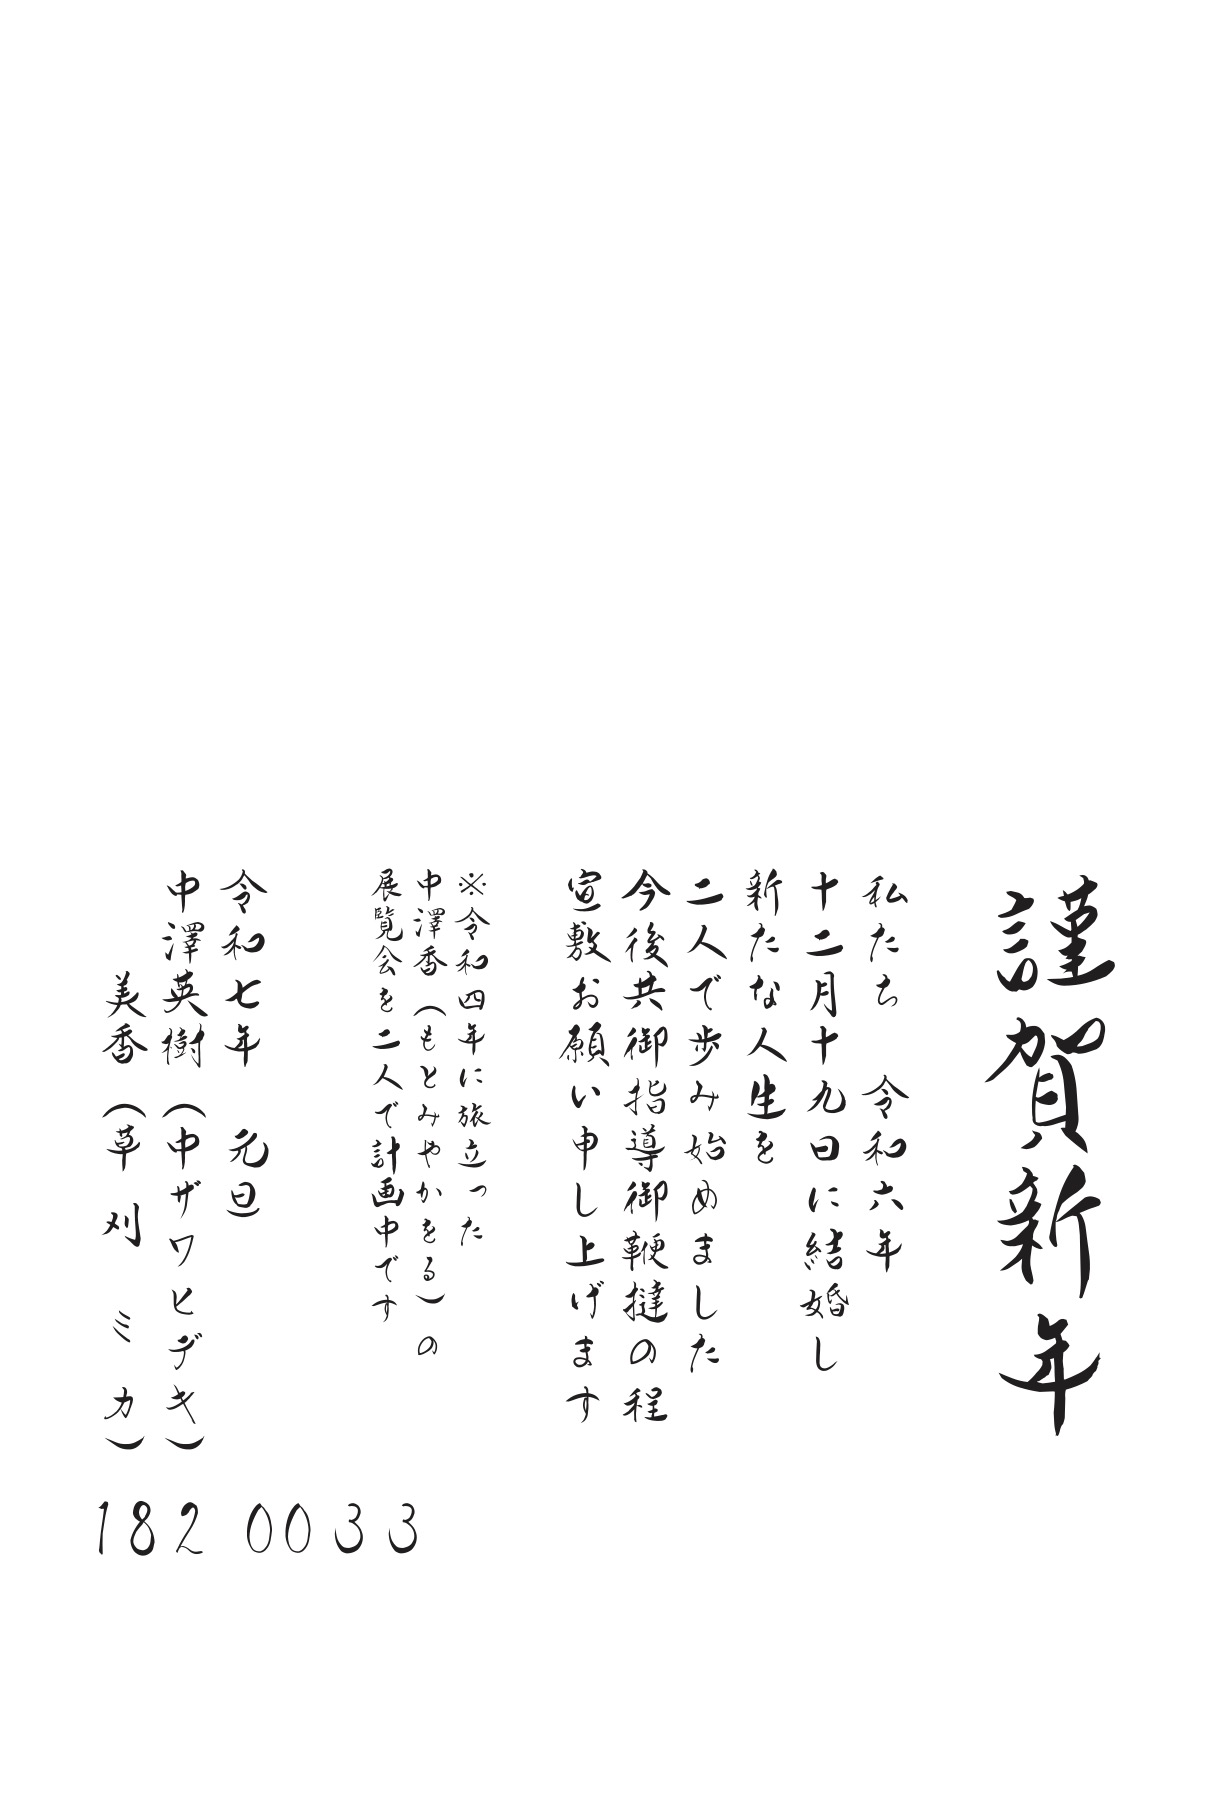 謹賀新年
私たち　令和六年
十二月十九日に結婚し
新たな人生を
二人で歩み始めました
今後共御指導御鞭撻の程
宣敷お願い申し上げます
※令和四年に旅立った
中澤香（もとみやかをる）の
展覧会を二人で計画中です
令和七年　元旦
中澤英樹（中ザワヒデキ）
美香（草刈　ミカ）
182 0033